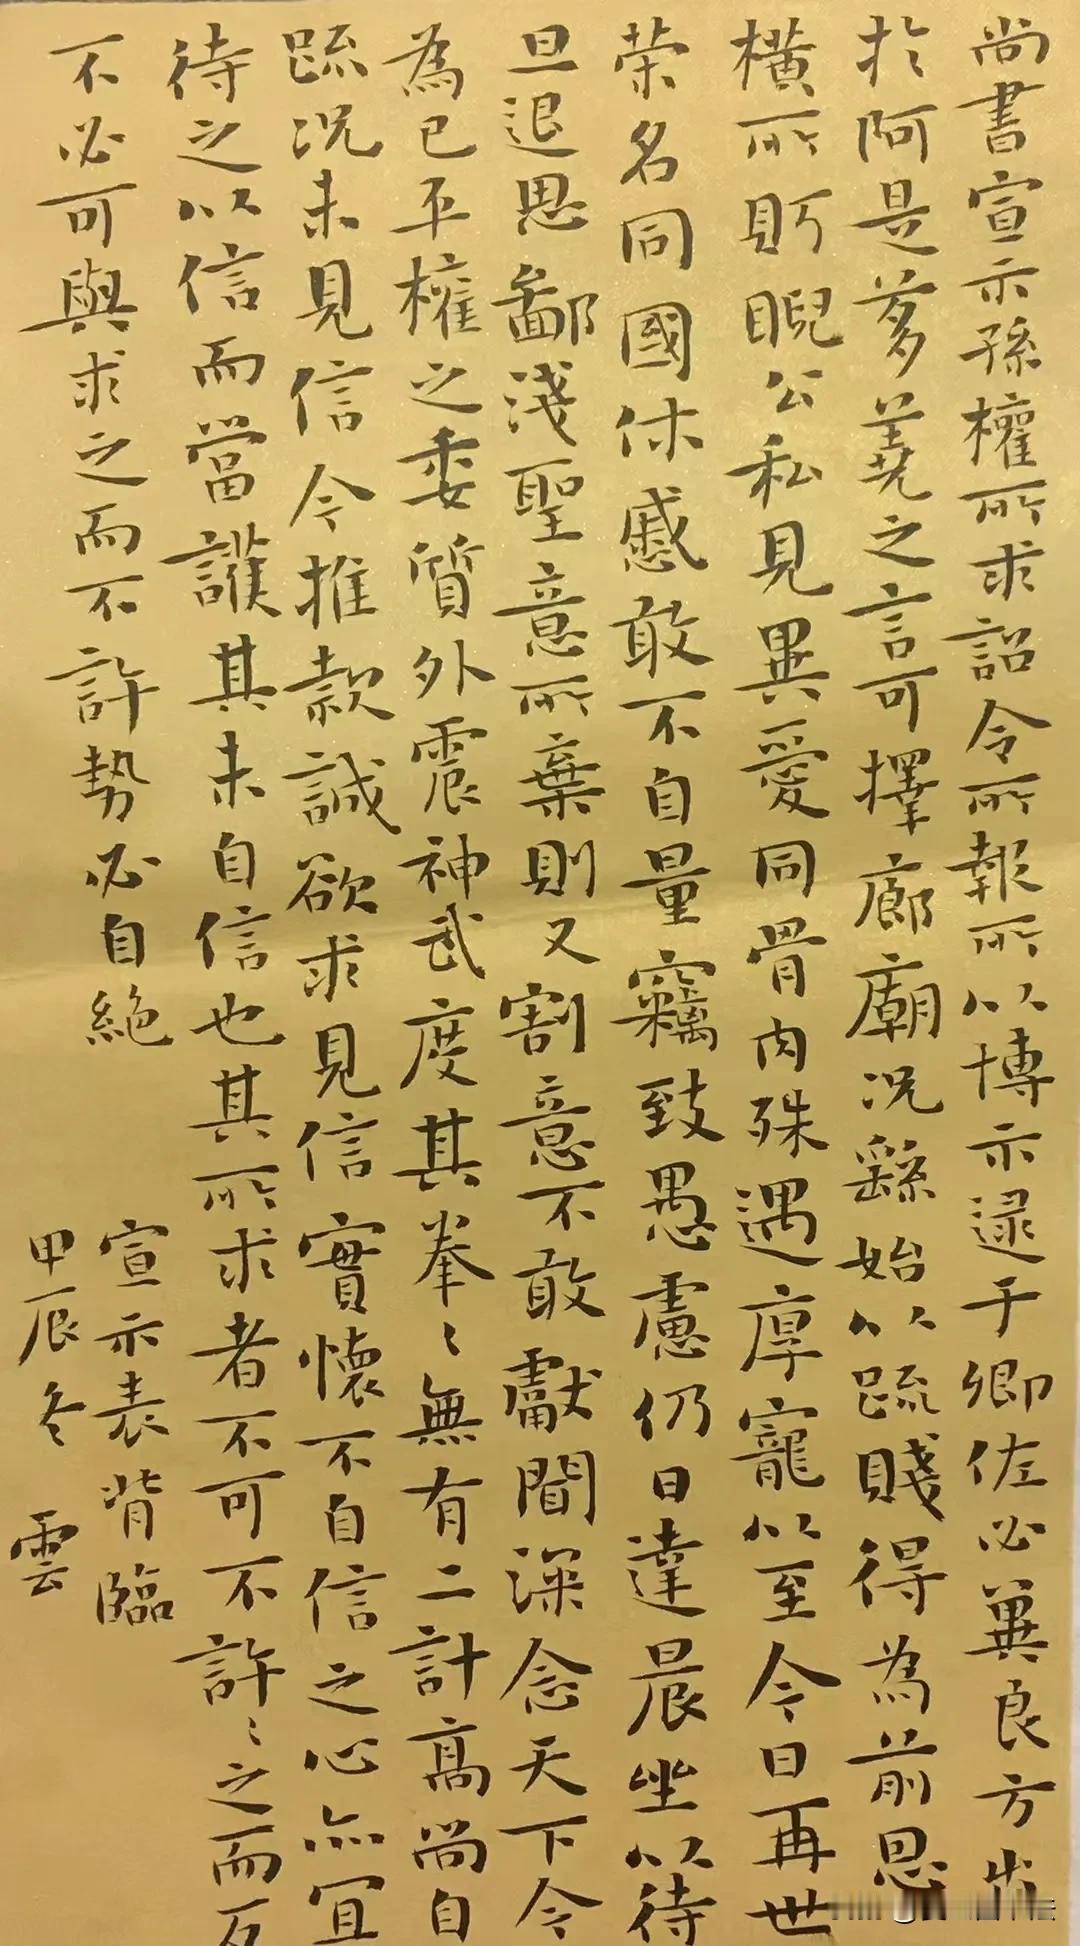 尚書宣示孫權所求詔令所報所以博示逮于卿佐必冀良方出
於阿是芻蕘之言可擇廊廟況繇始以疏賤得為前恩
橫所盱睨公私見異愛同骨肉殊遇厚寵以至今日再世
荣名同國休慼敢不自量竊致愚慮仍日達晨坐以待
旦退思鄙淺聖意所棄則又割意不敢獻聞深念天下今
為已平權之委質外震神武度其拳〻無有二計高尚自
疏況未見信今推款誠欲求見信實懷不自信之心亦宜
待之以信而當護其未自信也其所求者不可不許〻之而反
不必可與求之而不許勢必自絕
宣示表背臨
甲辰冬 雲